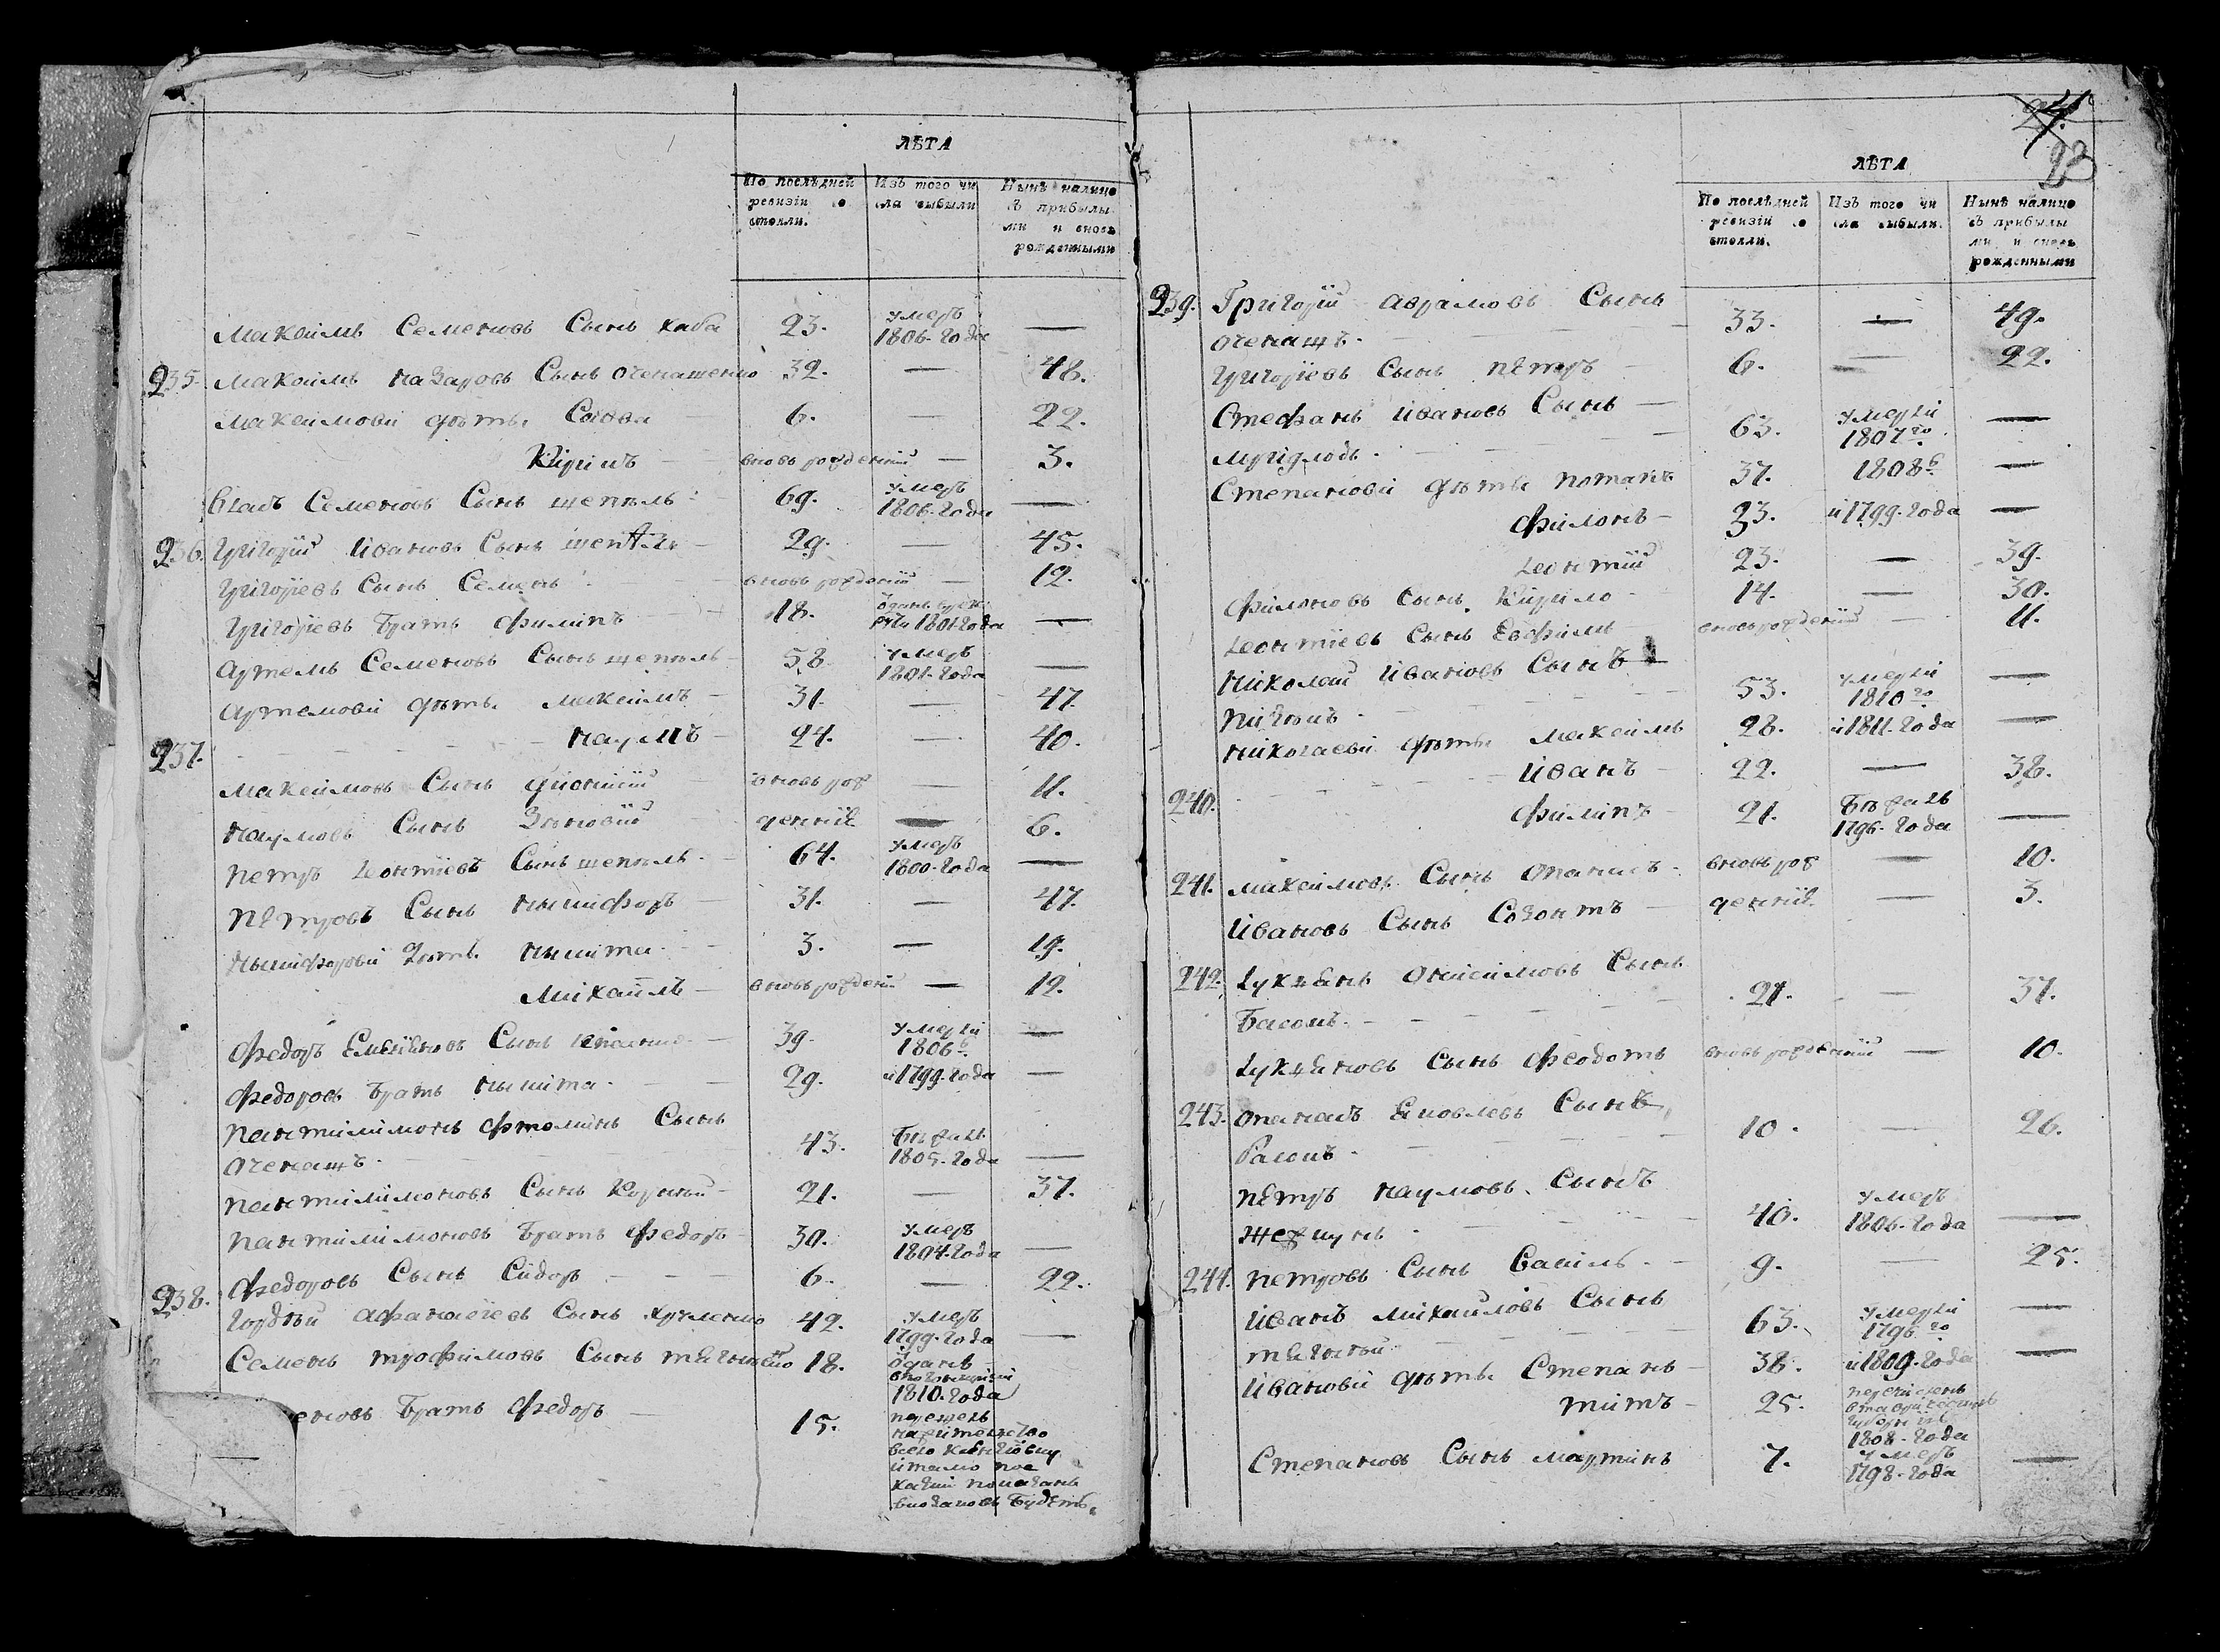 ЛѢТА
По послѣдней ревизіи состояли.
Изъ того числа выбыли
Нынѣ налицо съ прибылыми и вновь рожденными
Максимъ Семеновъ Сынъ каба 23. умеръ 1806. года —
235. Максимъ назаровъ Сынъ оченашенко 32. — 48.
Максимови дѣты Савва 6. — 22.
Кирилъ вновь рожденний — 3.
Власъ Семеновъ Сынъ щепѣль 69. умеръ 1806. года —
236. Григорій Ивановъ Сынъ 29. — 45.
Григоріевъ Сынъ Семенъ вновь рожденій — 12.
Григоріевъ Братъ Филипъ 18. 1801 года —
Артемъ Семеновъ Сынъ щепѣль 58. умеръ 1801. года —
Артемови дѣты Максимъ 31. — 47.
237. наумъ 24. — 40.
Максимовъ Сынъ Дионисій вновь рож — 11.
наумовъ Сынъ Зѣновій денніе — 6.
Петръ Леонтіевъ Сынъ щепѣль 64. умеръ 1800. года —
Петровъ Сынъ никифоръ 31. — 47.
никифорови дѣты никита 3. — 19.
Михаилъ вновь рожденій — 12.
Федоръ Сынъ 39. умерли 1806 —
Федоровъ Братъ никита 29. и 1799. года —
Пантилимонъ Фоминъ Сынъ
оченашъ 43. Бѣжалъ 1805. года —
Пантилимоновъ Сынъ Корнѣй 21. — 37.
Пантилимоновъ Братъ Федоръ 30. умеръ 1804. года —
238. Федоровъ Сынъ Сидоръ 6. — 22.
Гордѣй Афанасіевъ Сынъ 42. умеръ 1799. года —
Семенъ трофимовъ Сынъ 18. оданъ 1810. года
еновъ Братъ Федоръ 15.
Будетъ.
24.
23
ЛѢТА
По послѣдней ревизіи состояли.
Изъ того числа выбыли.
Нынѣ налицо съ прибылыми и вновь рожденными
239. Григорій аврамовъ Сынъ
оченащъ 33. — 49.
Григоріевъ Сынъ Петръ 6. — 22.
Стефанъ Ивановъ Сынъ
63. умерли 1807го —
Степанови дѣты Потапъ 37. 1808 —
Филонъ 23. и 1799. года —
Леонтій 23. — 39.
Филоновъ Сынъ Кирило 14. — 30.
Леонтіевъ Сынъ Ефимъ вновь рожденій — 11.
николай Ивановъ Сынъ
53. умерли 1810го —
николаеви дѣты Максимъ 28. и 1811. года —
240. Иванъ 22. — 38.
Филипъ 21. Бѣжалъ 1796. года —
241. Максимовъ Сынъ опанасъ вновь рож — 10.
Ивановъ Сынъ Созонтъ денніе — 3.
242. Лукянъ онисимовъ Сынъ
Басокъ 21. — 37.
Лукяновъ Сынъ Феодотъ вновь рожденній — 10.
243. опанасъ Яковлевъ Сынъ
10. — 26.
Петръ наумовъ Сынъ
40. умеръ 1806. года —
244. Петровъ Сынъ Василь 9. — 25.
Иванъ михайловъ Сынъ
63. умерли 1796го —
Иванови дѣты Степанъ 38. и 1809. года —
титъ 25. перечисленъ 1808. года
Степановъ Сынъ мартинъ 7. умеръ 1798. года —